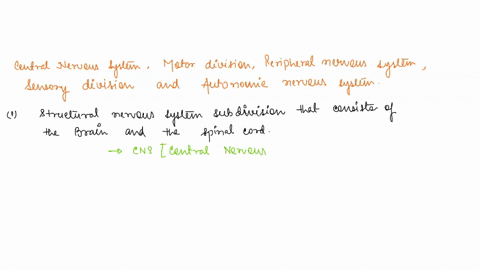 Central Nervous System, Motor division, Peripheral nervous system,
Sensory division and Autonomic nervous system.
(1) Structural nervous system subdivision that consists of
the Brain and the spinal cord.
→ CNS [Central Nervous